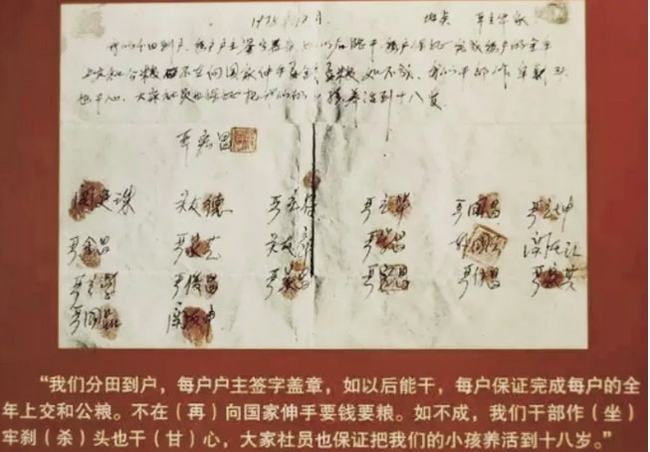 1978年12月 地点 严立华家
我们分田到户，每户户主签字盖章，如以后能干，每户保证完成每户的全年
上交和公粮，不在向国家伸手要钱要粮，如不成，我们干部作牢刹头
也干心，大家社员也保证把我们的小孩养活到十八岁
严宏昌
关廷珠 关友德 严立符 严立华 严国昌 严立坤
严金昌 严家芝 关友章 严学昌 韩国云 关友江
严立学 严俊昌 严美昌 严宏昌 严付昌 严家其
严国品 关友申
“我们分田到户，每户户主签字盖章，如以后能干，每户保证完成每户的全
年上交和公粮。不在（再）向国家伸手要钱要粮。如不成，我们干部作（坐）
牢刹（杀）头也干（甘）心，大家社员也保证把我们的小孩养活到十八岁。”